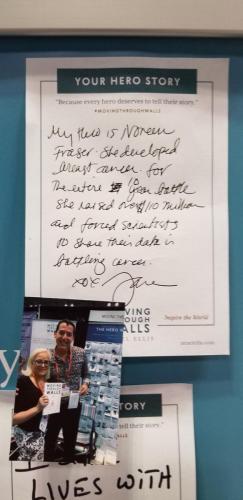 YOUR HERO STORY
"Because every hero deserves to tell their story."
#MOVINGTHROUGHWALLS
My Hero is Noreen
Fraser. She developed
breast cancer. for
The entire 10 year battle
She raised over $110 million
and forced scientists
to share their data in
battling cancer.
XOX
MOVING
THROUGH
WALLS
ELLIS
Inspire the World
THE HERO
MOVING
WALLS
STORY
tell their story."
LIVES WITH